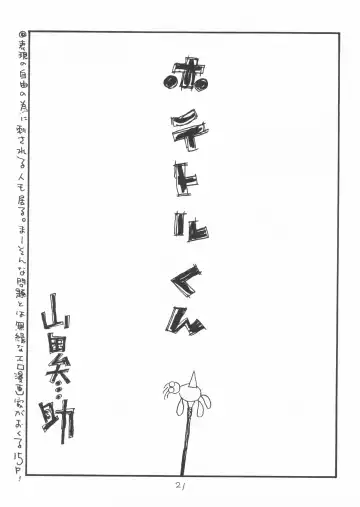 ㊟表現の自由の為に刺される人も居る。まーそんな問題とは無縁なエロ漫画家がおくる15P!
ホテトルくん
山田矢…助
21